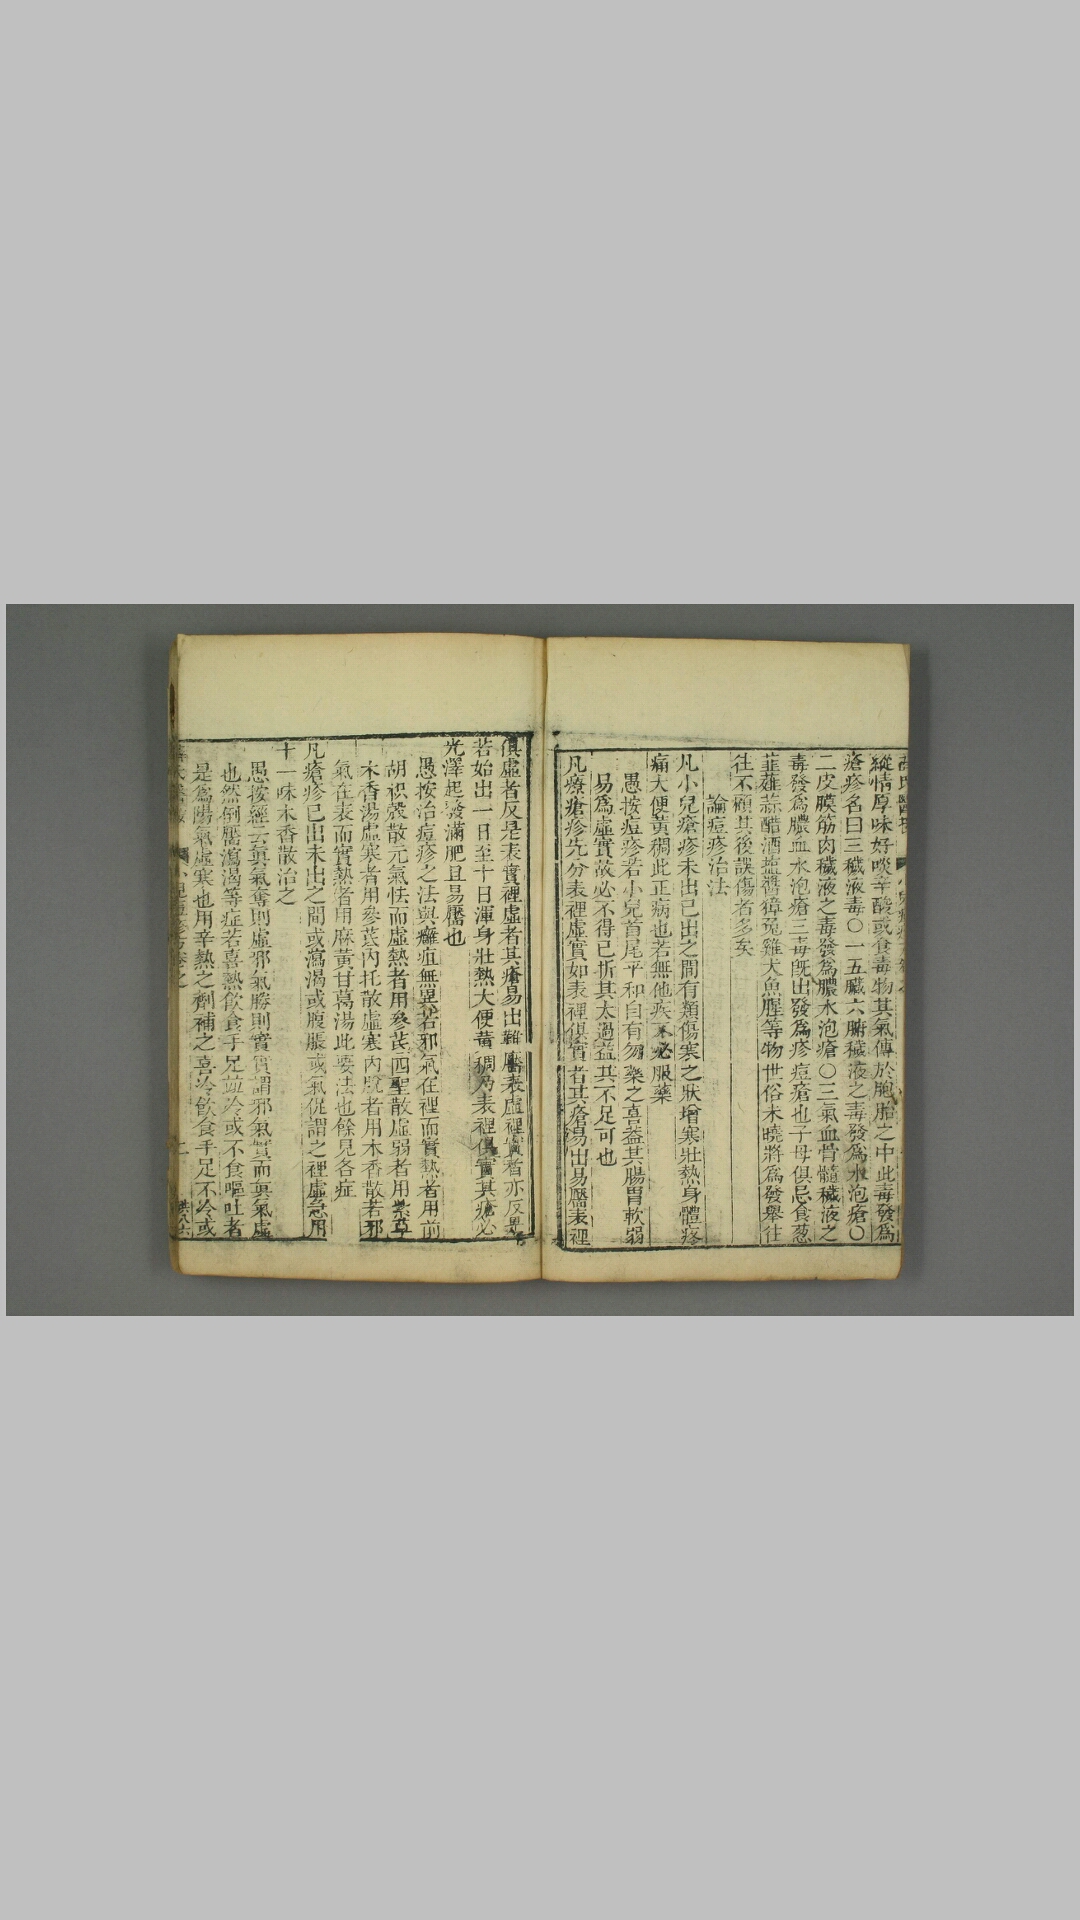 縱情厚味好啖辛酸或食毒物其氣傳於胞胎之中此毒發爲
瘡疹名曰三穢液毒〇一五臟六腑穢液之毒發爲水泡瘡〇
二皮膜筋肉穢液之毒發爲膿水泡瘡〇三氣血骨髓穢液之
毒發爲膿血水泡瘡三毒旣出發爲疹痘瘡也子母俱忌食葱
韮薤蒜醋酒鹽醬獐兎雞犬魚腥等物世俗未曉將爲發舉往
往不顧其後誤傷者多矣
論痘疹治法
凡小兒瘡疹未出已出之間有類傷寒之狀增寒壯熱身體疼
痛大便黃稠此正病也若無他疾不必服藥
愚按痘疹若小兒首尾平和自有勿藥之喜蓋其腸胃軟弱
易爲虛實故必不得已折其太過益其不足可也
凡療瘡疹先分表裡虛實如表裡俱實者其瘡易出易靨表裡
俱虛者反是表實裡虛者其瘡易出難靨表虛裡實者亦反是
若始出一日至十日渾身壯熱大便黃稠乃表裡俱實其瘡必
光澤起發滿肥且易靨也
愚按治痘疹之法與癰疽無異若邪氣在裡而實熱者用前
胡枳殼散元氣怯而虛熱者用參芪四聖散虛弱者用紫草
木香湯虛寒者用參芪內托散虛寒內脫者用木香散若邪
氣在表而實熱者用麻黃甘葛湯此要法也餘見各症
凡瘡疹已出未出之間或瀉渴或腹脹或氣促謂之裡虛急用
十一味木香散治之
愚按經云眞氣奪則虛邪氣勝則實實謂邪氣實而眞氣虛
也然倒靨瀉渴等症若喜熱飲食手足並冷或不食嘔吐者
是爲陽氣虛寒也用辛熱之劑補之喜冷飲食手足不冷或